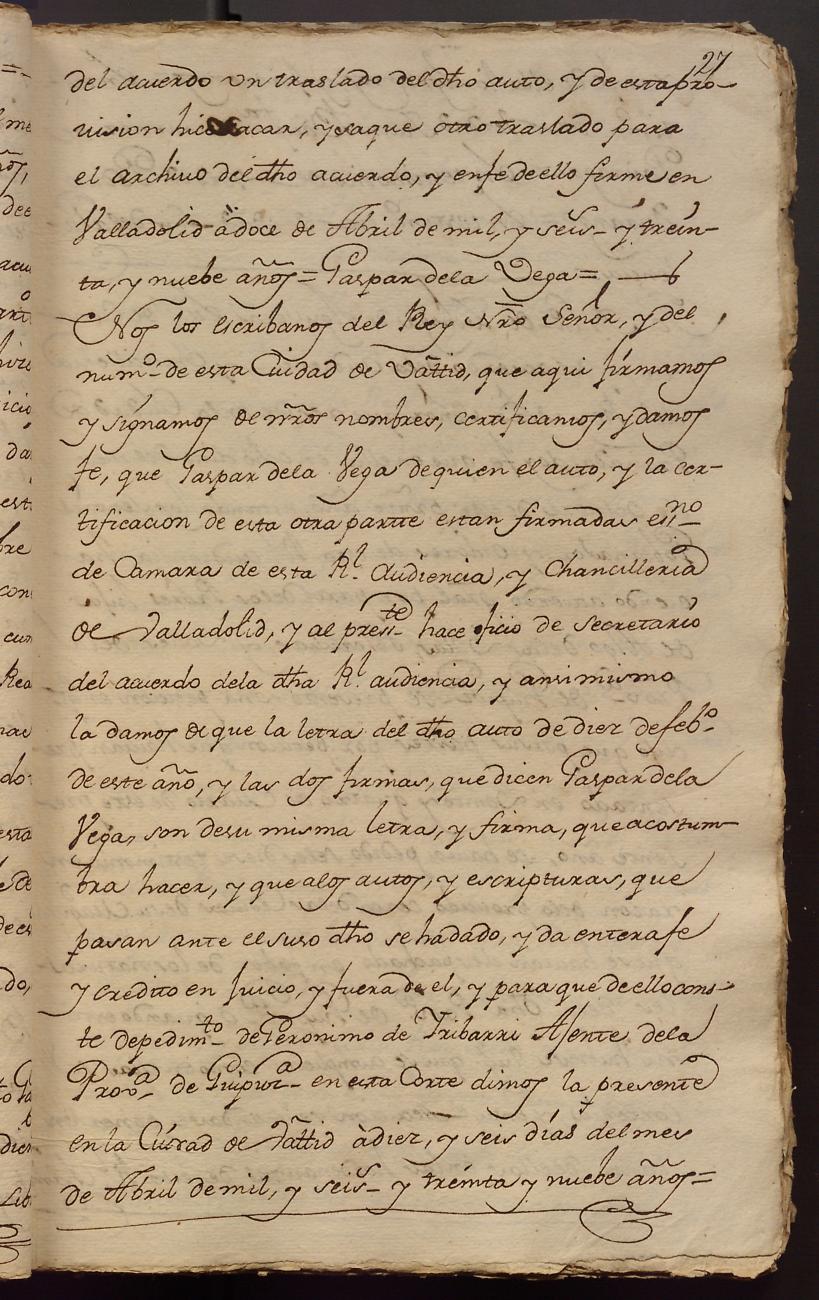 27
del acuerdo un traslado del dho auto, y de esta pro-
vision hice sacar, y saque otro traslado para
el archivo del dho acuerdo, y enfe de ello firme en
Valladolid â doce de Abril de mil, y seis_ y trein-
ta, y nuebe años = Gaspar dela Vega =
Nos los escribanos del Rey Nro Señor, y del
num.o de esta Ciudad de Vallid, que aqui firmamos
y signamos de nros nombres, certificamos, y damos
fe, que Gaspar dela Vega de quien el auto, y la cer-
tificacion de esta otra partte estan firmadas es.no
de Camara de esta R.l Audiencia, y Chancilleria
de Valladolid, y al pres.te hace oficio de secretario
del acuerdo dela dha R.l audiencia, y ansimismo
la damos de que la letra del dho auto de diez de feb.o
de este año, y las dos firmas, que dicen Gaspar dela
Vega, son desu misma letra, y firma, que acostum-
bra hacer, y que alos autos, y escripturas, que
pasan ante el suso dho se ha dado, y da entera fe
y credito en Juicio, y fuera de el, y para que de ello cons-
te de pedim.to de Geronimo de Iribarri Ajente dela
Prov.a de Guipuz.a en esta Corte dimos la presente
en la Ciudad de Vallid à diez, y seis días del mes
de Abril de mil, y seis_ y treinta y nuebe años =